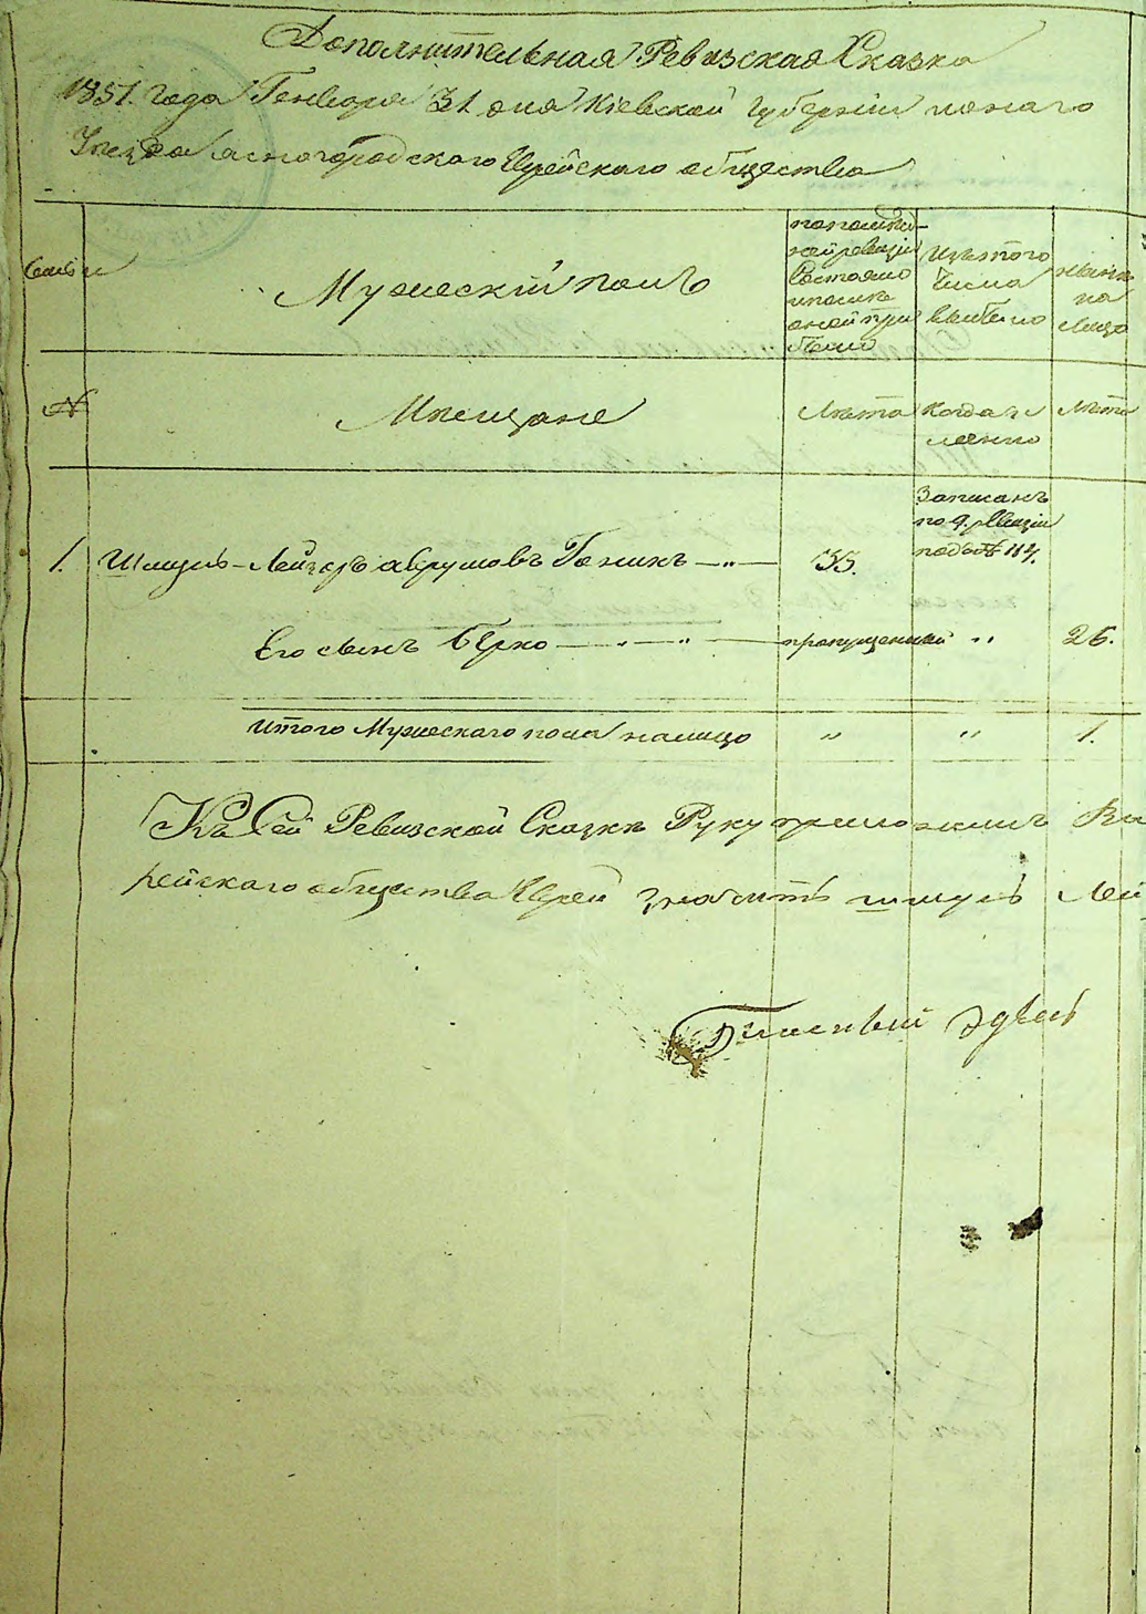 Дополнительная Ревизская Сказка
1851. года Генваря 31 дня Кіевской Губерніи
Уезда Ясногородскаго Еврейскаго общества
Семьи
Мужескій полъ
по последней ревизіи состояло и после оной прибыло
Изътого числа выбыло
ныне на лицо
№
Мѣщане
Лѣта
когда именно
Лѣта
1.
Шмуль-Лейзеръ Аврумовъ Гоникъ —〃—
35.
Записанъ по 9. Ревизіи подъ № 114.
Его сынъ Берко —〃—〃—
пропущенный
〃
26.
Итого Мужескаго пола налицо
〃
〃
1.
Къ Сей Ревизской Сказкѣ Руку приложилъ
рейскаго общества Еврей Шмуль Лей